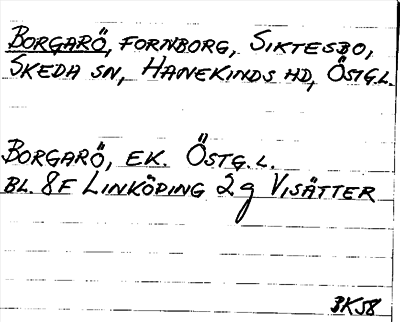 BORGARÖ, FORNBORG, SIKTESBO,
SKEDA SN, HANEKINDS HD, ÖSTGL.
BORGARÖ, EK. ÖSTG.L.
BL. 8F LINKÖPING 2g VISÄTTER
BK58